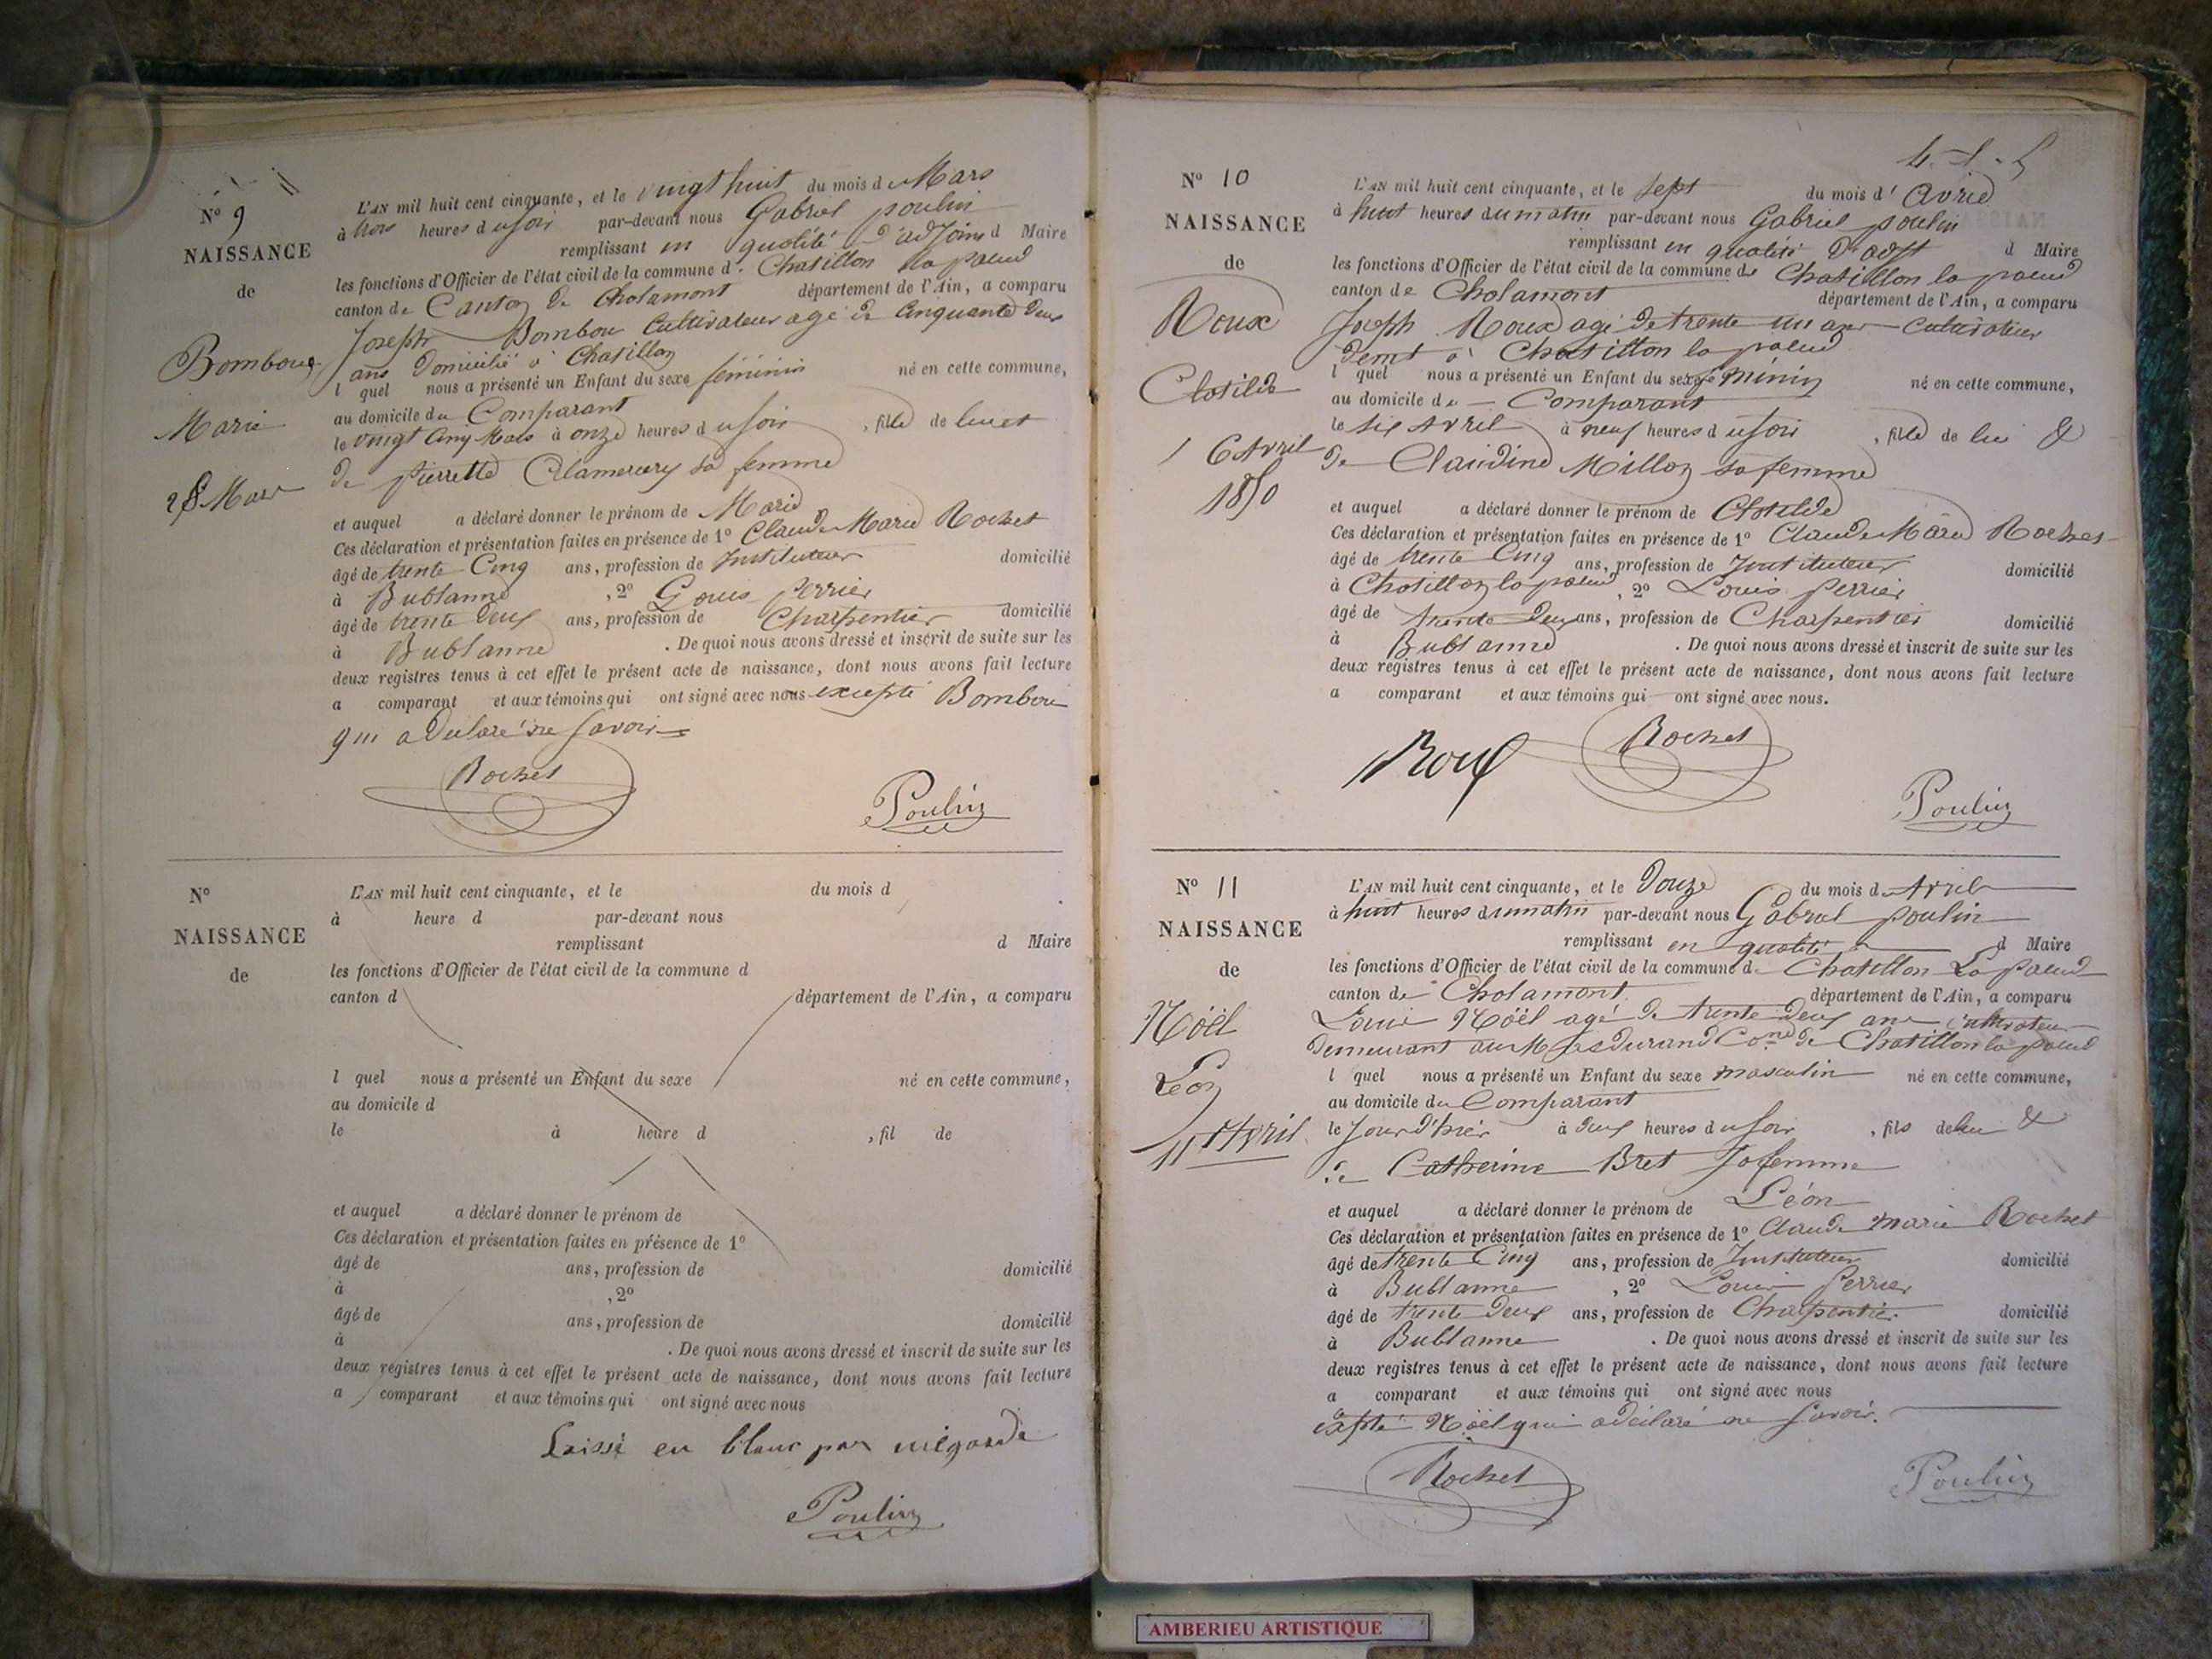 N° 9
NAISSANCE
de
Bomboux
Marie
28 Mars
L'AN mil huit cent cinquante, et le vingt huit du mois de Mars
à trois heures du soir par-devant nous Gabriel poulin
remplissant en qualité d'adjoint d Maire
les fonctions d'Officier de l'état civil de la commune d. Chatillon la palud
canton de Canton de Chalamont département de l'Ain, a comparu
Joseph Bombou Cultivateur agé de Cinquante deux
ans Domicilié à Chatillon
l quel nous a présenté un Enfant du sexe féminin né en cette commune,
au domicile du Comparant
le vingt Cinq Mars à onze heures du soir, fille de lui et
de pierrette sa femme
et auquel a déclaré donner le prénom de Marie
Ces déclaration et présentation faites en présence de 1° Claude Marie Rochet
âgé de trente Cinq ans, profession de Instituteur domicilié
à Bublanne, 2° Louis perrier
âgé de trente deux ans, profession de Charpentier domicilié
à Bublanne. De quoi nous avons dressé et inscrit de suite sur les
deux registres tenus à cet effet le présent acte de naissance, dont nous avons fait lecture
a comparant et aux témoins qui ont signé avec nous excepté Bombou
qui a déclaré ne savoir
Rochet
Poulin
N°
NAISSANCE
de
L'AN mil huit cent cinquante, et le du mois d
à heure d par-devant nous
remplissant d Maire
les fonctions d'Officier de l'état civil de la commune d
canton d département de l'Ain, a comparu
l quel nous a présenté un Enfant du sexe né en cette commune,
au domicile d
le à heure d, fil de
et auquel a déclaré donner le prénom de
Ces déclaration et présentation faites en présence de 1°
âgé de ans, profession de domicilié
à, 2°
âgé de ans, profession de domicilié
à. De quoi nous avons dressé et inscrit de suite sur les
deux registres tenus à cet effet le présent acte de naissance, dont nous avons fait lecture
a comparant et aux témoins qui ont signé avec nous
Laissé en blanc par mégarde
Poulin
N° 10
NAISSANCE
de
Roux
Clotilde
6 Avril
1850
L'AN mil huit cent cinquante, et le sept du mois d'Avril
à huit heures du matin par-devant nous Gabriel poulin
remplissant en qualité d'adjt d Maire
les fonctions d'Officier de l'état civil de la commune de Chatillon la palud
canton de Chalamont département de l'Ain, a comparu
Joseph Roux agé de trente un ans Cultivateur
demt à Chatillon la palud
l quel nous a présenté un Enfant du sexe féminin né en cette commune,
au domicile du Comparant
le six Avril à neuf heures du soir, fille de lui &
de Claudine Millon sa femme
et auquel a déclaré donner le prénom de Clotilde
Ces déclaration et présentation faites en présence de 1° Claude Marie Rochet
âgé de trente Cinq ans, profession de Instituteur domicilié
à Chatillon la palud, 2° Louis perrier
âgé de trente deux ans, profession de Charpentier domicilié
à Bublanne. De quoi nous avons dressé et inscrit de suite sur les
deux registres tenus à cet effet le présent acte de naissance, dont nous avons fait lecture
a comparant et aux témoins qui ont signé avec nous.
Roux
Rochet
Poulin
N° 11
NAISSANCE
de
Nöël
Léon
11 Avril
L'AN mil huit cent cinquante, et le Douze du mois d Avril
à huit heures du matin par-devant nous Gabriel poulin
remplissant en qualité d Maire
les fonctions d'Officier de l'état civil de la commune de Chatillon La palud
canton de Chalamont département de l'Ain, a comparu
Louis Nöël agé de trente deux ans cultivateur
demeurant au Mas durand Cone de Chatillon la palud
l quel nous a présenté un Enfant du sexe masculin né en cette commune,
au domicile du Comparant
le Jour d'hier à deux heures du soir, fils de lui &
de Catherine Bret sa femme
et auquel a déclaré donner le prénom de Léon
Ces déclaration et présentation faites en présence de 1° Claude marie Rochet
âgé de trente Cinq ans, profession de Instituteur domicilié
à Bublanne, 2° Louis perrier
âgé de trente deux ans, profession de Charpentier domicilié
à Bublanne. De quoi nous avons dressé et inscrit de suite sur les
deux registres tenus à cet effet le présent acte de naissance, dont nous avons fait lecture
a comparant et aux témoins qui ont signé avec nous
excepté Nöël qui a déclaré ne savoir.
Rochet
Poulin
AMBERIEU ARTISTIQUE